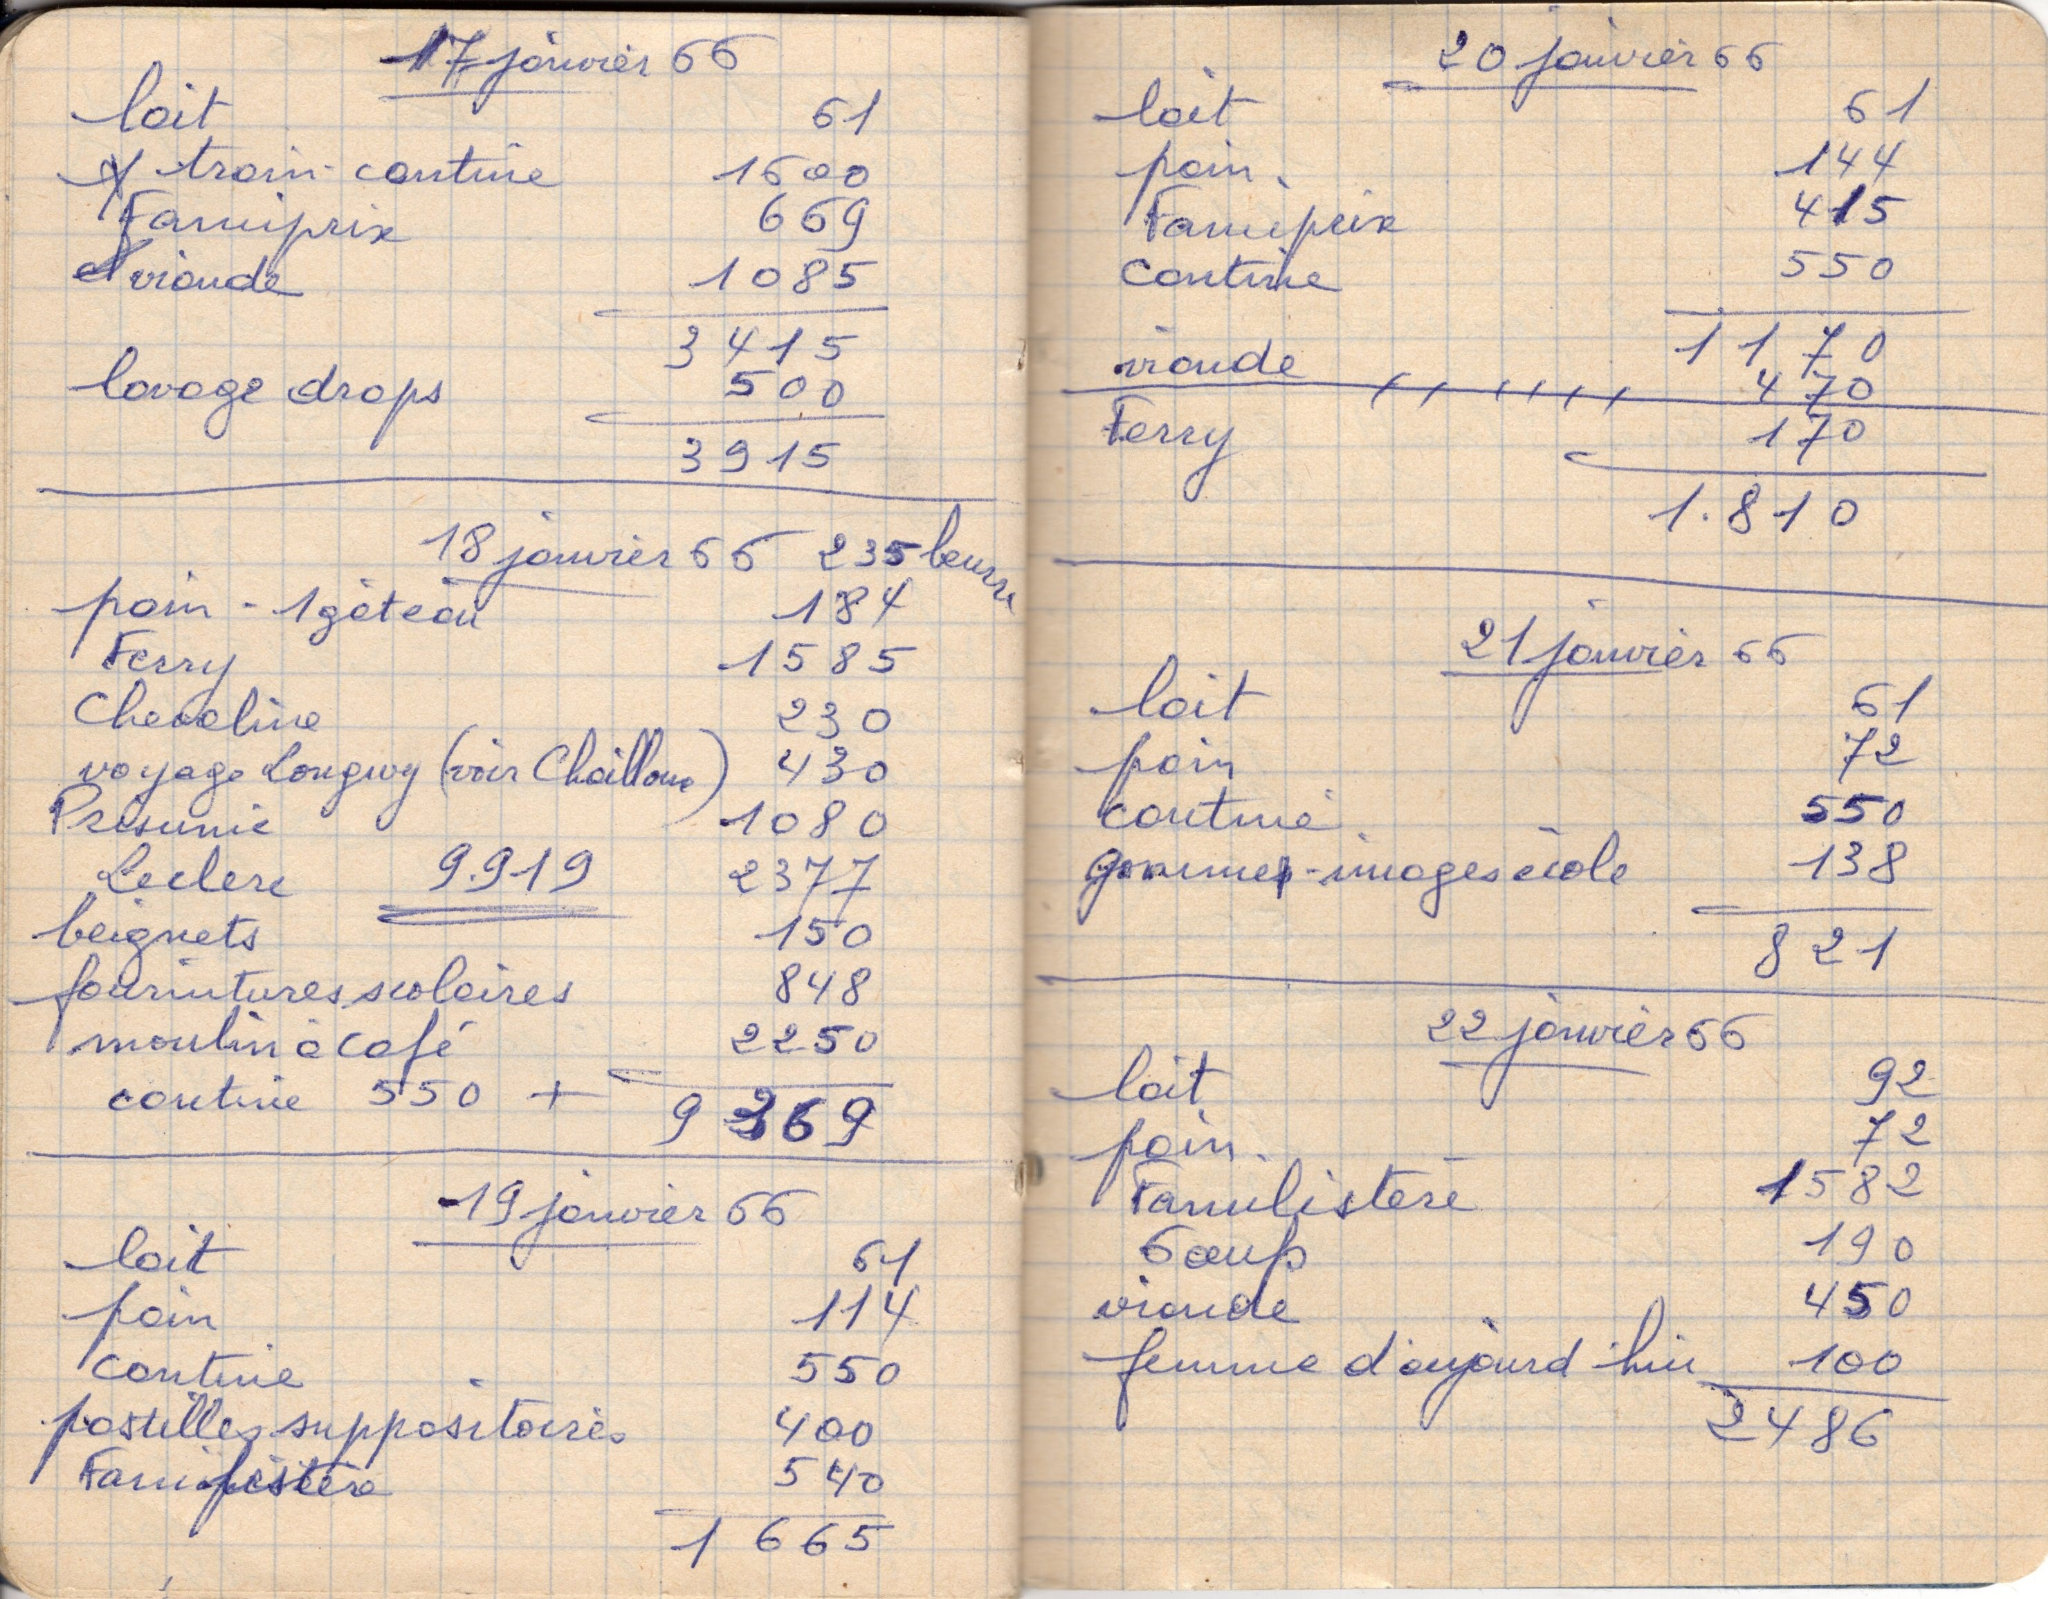 17 janvier 66
lait 61
train - cantine 1600
Famiprix 669
viande 1085
3415
lavage draps 500
3915
18 janvier 66 235 beurre
pain - 1 gâteau 184
Ferry 1585
Chevaline 230
voyage Longwy (voir Chailloux) 430
Prisunic 1080
Leclerc 9.919 2377
beignets 150
fournitures scolaires 848
moulin à café 2250
cantine 550 + 9369
19 janvier 66
lait 61
pain 114
cantine 550
pastilles suppositoires 400
Familistère 540
1665
20 janvier 66
lait 61
pain 144
Famiprix 415
cantine 550
1170
viande 470
Ferry 170
1.810
21 janvier 66
lait 61
pain 72
cantine 550
gommes - images école 138
821
22 janvier 66
lait 92
pain 72
Familistère 1582
6 œufs 190
viande 450
femme d'aujourd'hui 100
2486